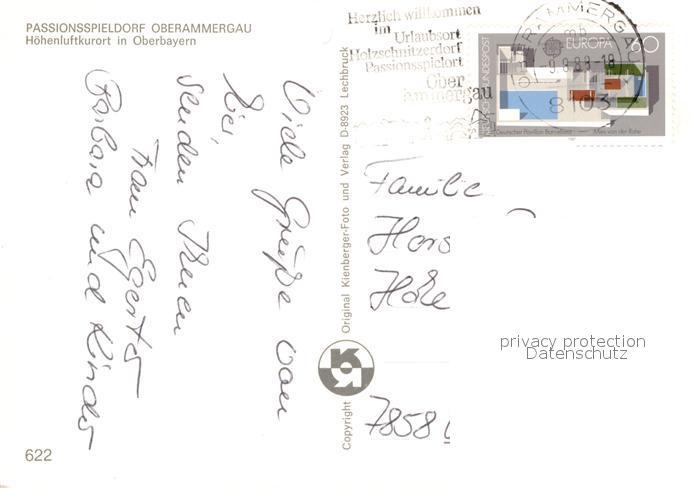 PASSIONSSPIELDORF OBERAMMERGAU
Höhenluftkurort in Oberbayern
Viele Grüße von
hier,
senden Ihnen
Frau
Barbara und Kinder
622
Original Kienberger-Foto und Verlag D-8923 Lechbruck
Copyright
Herzlich willkommen
im
Urlaubsort
Holzschnitzerdorf
Passionsspielort
Ober
ammergau
OBERAMMERGAU
mb
9.8.88-18
8103
DEUTSCHE BUNDESPOST
EUROPA 60
Deutscher Pavillon Barcelona
Mies van der Rohe
Familie
7858
privacy protection
Datenschutz